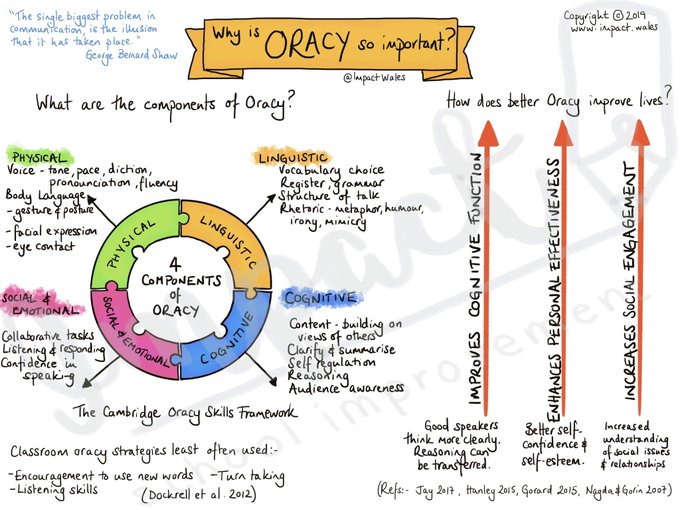 "The single biggest problem in
communication, is the illusion
that it has taken place."
George Bernard Shaw
Why is ORACY so important?
@ImpactWales
Copyright © 2019
www.impact.wales
What are the components of Oracy?
PHYSICAL
Voice - tone, pace, diction,
pronounciation, fluency
Body Language
- gesture & posture
- facial expression
- eye contact
LINGUISTIC
Vocabulary choice
Register, grammar
Structure of talk
Rhetoric - metaphor, humour,
irony, mimicry
PHYSICAL
LINGUISTIC
4
COMPONENTS
of
ORACY
SOCIAL & EMOTIONAL
COGNITIVE
SOCIAL &
EMOTIONAL
Collaborative tasks
Listening & responding
Confidence in
speaking
COGNITIVE
Content - building on
views of others
Clarify & summarise
Self regulation
Reasoning
Audience awareness
The Cambridge Oracy Skills Framework
Classroom oracy strategies least often used:-
- Encouragement to use new words - Turn taking
- Listening skills (Dockrell et al. 2012)
How does better Oracy improve lives?
IMPROVES COGNITIVE FUNCTION
Good speakers
think more clearly.
Reasoning can
be transferred.
ENHANCES PERSONAL EFFECTIVENESS
Better self-
confidence &
self-esteem.
INCREASES SOCIAL ENGAGEMENT
Increased
understanding
of social issues
& relationships
(Refs:- Jay 2017, Hanley 2015, Gorard 2015, Nagda & Gorin 2007)
impact
school improvement